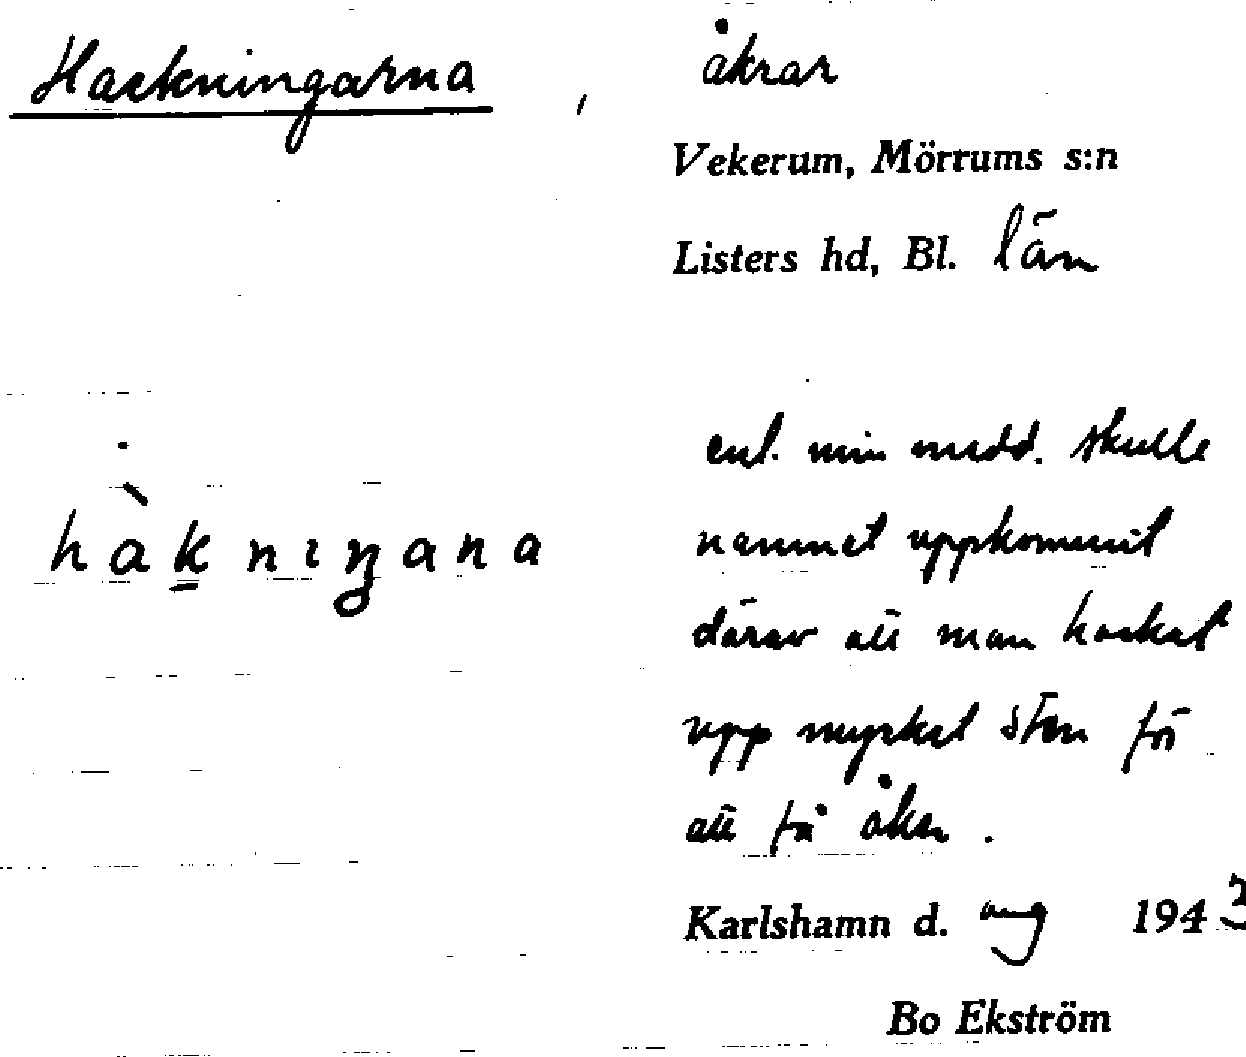 Hackningarna , åkrar
Vekerum, Mörrums s:n
Listers hd, Bl. län
hàkniŋana
enl. min medd. skulle
namnet uppkommit
därav att man hackat
upp mycket sten för
att få åker.
Karlshamn d. aug 1943
Bo Ekström